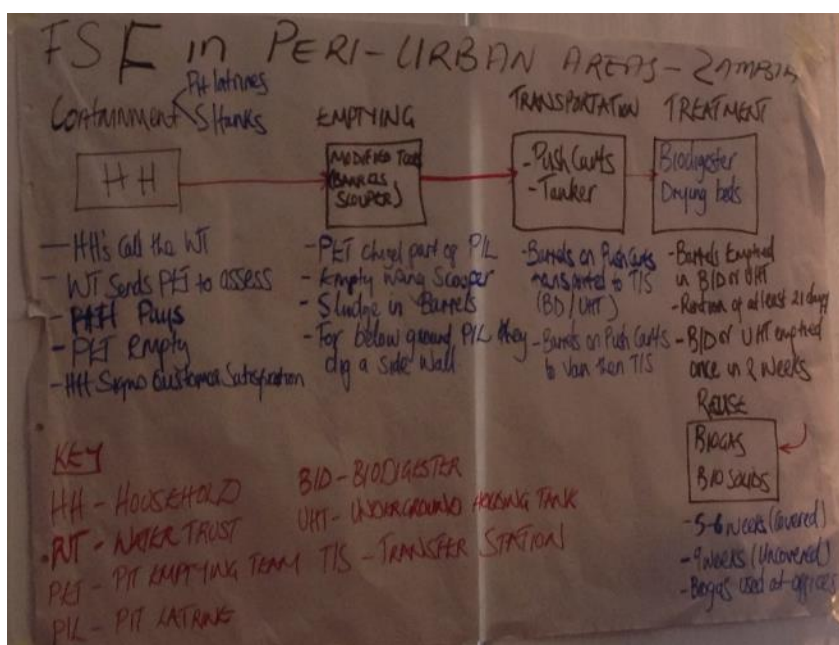 FSE in PERI-URBAN AREAS - ZAMBIA
Containment
Pit latrines
S/tanks
HH
- HH's Call the WT
- WT Sends PET to assess
- HH Pays
- PET Empty
- HH Signs Customer Satisfaction
EMPTYING
MODIFIED TOOLS
(BARRELS
SCOUPER)
- PET chisel part of P/L
- Empty using Scooper
- Sludge in Barrels
- For below ground P/L they
dig a side wall
TRANSPORTATION
- Push Carts
- Tanker
- Barrels on Push Carts
transported to T/S
(BD/UHT)
- Barrels on Push Carts
to Van then T/S
TREATMENT
Biodigester
Drying beds
- Barrels Emptied
in B/D or UHT
- of at least 21 days
- B/D or UHT emptied
once in 2 weeks
REUSE
BIOGAS
BIO SOLIDS
- 5-6 weeks (Covered)
- 9 weeks (Uncovered)
- Biogas used at offices
KEY
HH - HOUSEHOLD
WT - WATER TRUST
PET - PIT EMPTYING TEAM
P/L - PIT LATRINE
B/D - BIODIGESTER
UHT - UNDERGROUND HOLDING TANK
T/S - TRANSFER STATION